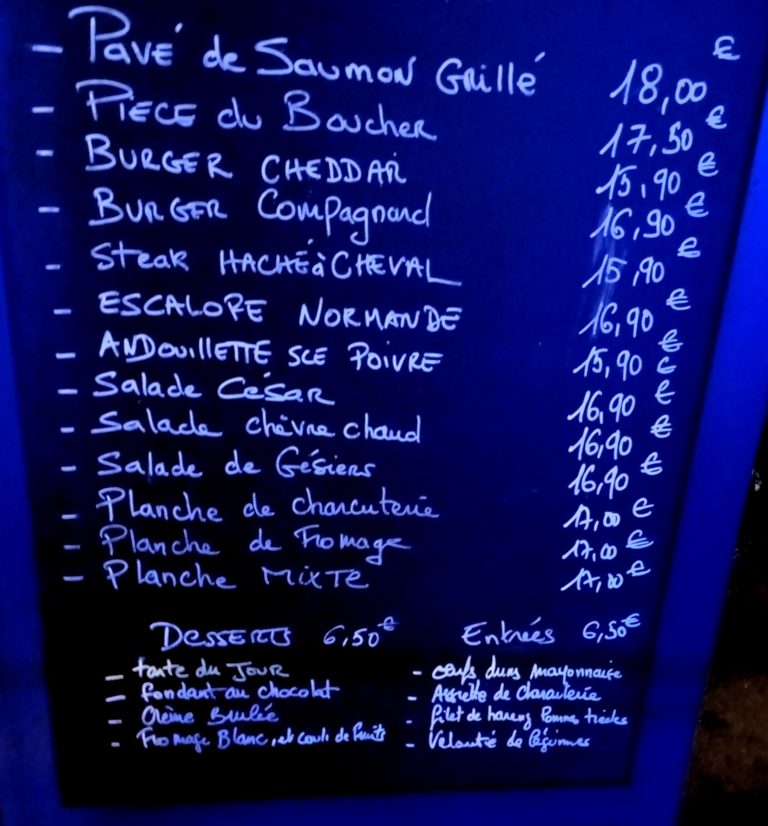 - Pavé de Saumon Grillé 18,00 €
- Pièce du Boucher 17,50 €
- BURGER CHEDDAR 15,90 €
- BURGER Compagnard 16,90 €
- Steak HACHÉ à CHEVAL 15,90 €
- ESCALOPE NORMANDE 16,90 €
- ANDOUILLETTE SCE POIVRE 15,90 €
- Salade César 16,90 €
- Salade chèvre chaud 16,90 €
- Salade de Gésiers 16,90 €
- Planche de charcuterie 17,00 €
- Planche de Fromage 17,00 €
- Planche MIXTE 17,00 €
DESSERTS 6,50 €
- tarte du JOUR
- fondant au chocolat
- Crème Brulée
- Fromage Blanc, et couli de fruits
Entrées 6,50 €
- œufs durs mayonnaise
- Assiette de Charcuterie
- filet de hareng Pomme tièdes
- Velouté de légumes